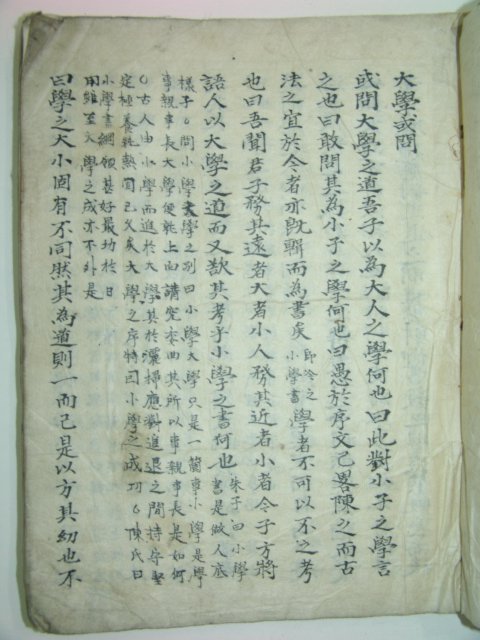 大學或問
或問大學之道吾子以為大人之學何也曰此對小子之學言
之也曰敢問其為小子之學何也曰愚於序文已畧陳之而古
法之宜於今者亦旣輯而為書矣即今之小學書學者不可以不之考
也曰吾聞君子務其遠者大者小人務其近者小者今子方將
語人以大學之道而又欲其考乎小學之書何也朱子曰小學書是做人底
樣子○問小學大學之別曰小學大學只是一箇事小學是學
事親事長大學便就上面講究委曲其所以事親事長是如何
○古人由小學而進於大學其於灑掃應對進退之間持守堅
定養純熟固已久矣大學之序特因小學之成功○陳氏曰
小學書綱領甚好最切於日
用雖至大學之成亦不外是
曰學之大小固有不同然其為道則一而已是以方其幼也不